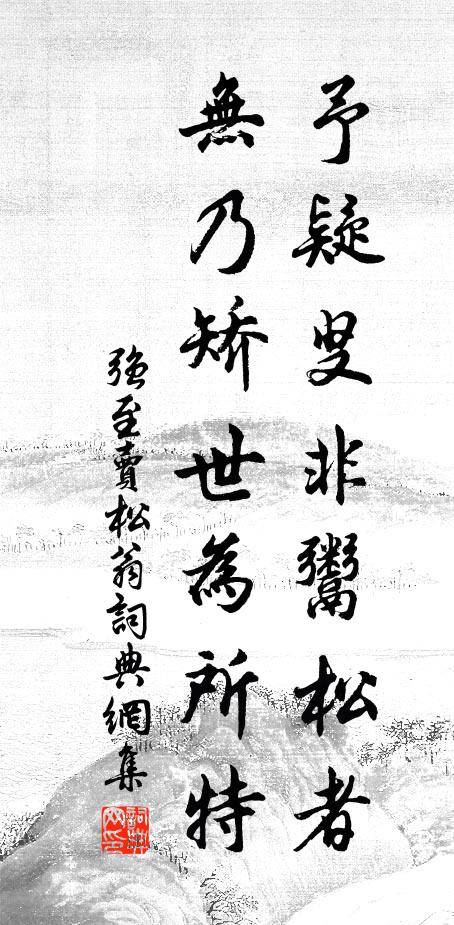 予疑叟非鬻松者
無乃矯世為所特
強至賣松翁詞典網集